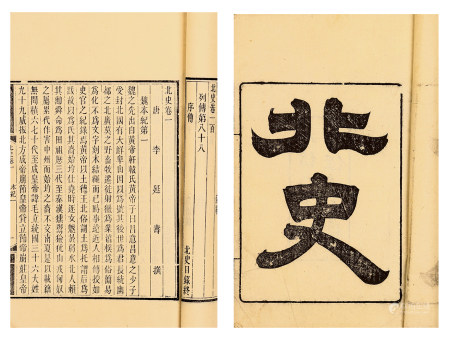 北史
北史卷一百
列傳第八十八
序傳
北史目錄終
北史卷一
唐 李延壽 撰
魏本紀第一
魏之先出自黃帝軒轅氏黃帝子曰昌意昌意之少子
受封北國有大鮮卑山因以為號其後世為君長統幽
都之北廣漠之野畜牧遷徙射獵為業淳樸為俗簡易
為化不為文字刻木結繩而已時事遠近人相傳授如
史官之紀錄焉黃帝以土德王北俗謂土為托謂后為
跋故以為氏其裔始均仕堯時逐女魃於弱水北人賴
其勳舜命為田祖歷三代至秦漢獯鬻獫狁山戎匈奴
之屬累代作害中州而始均之裔不交南夏是以載籍
無聞積六七十代至成皇帝諱毛立統國三十六大姓
九十九威振北方成帝崩節皇帝貸立節帝崩莊皇帝